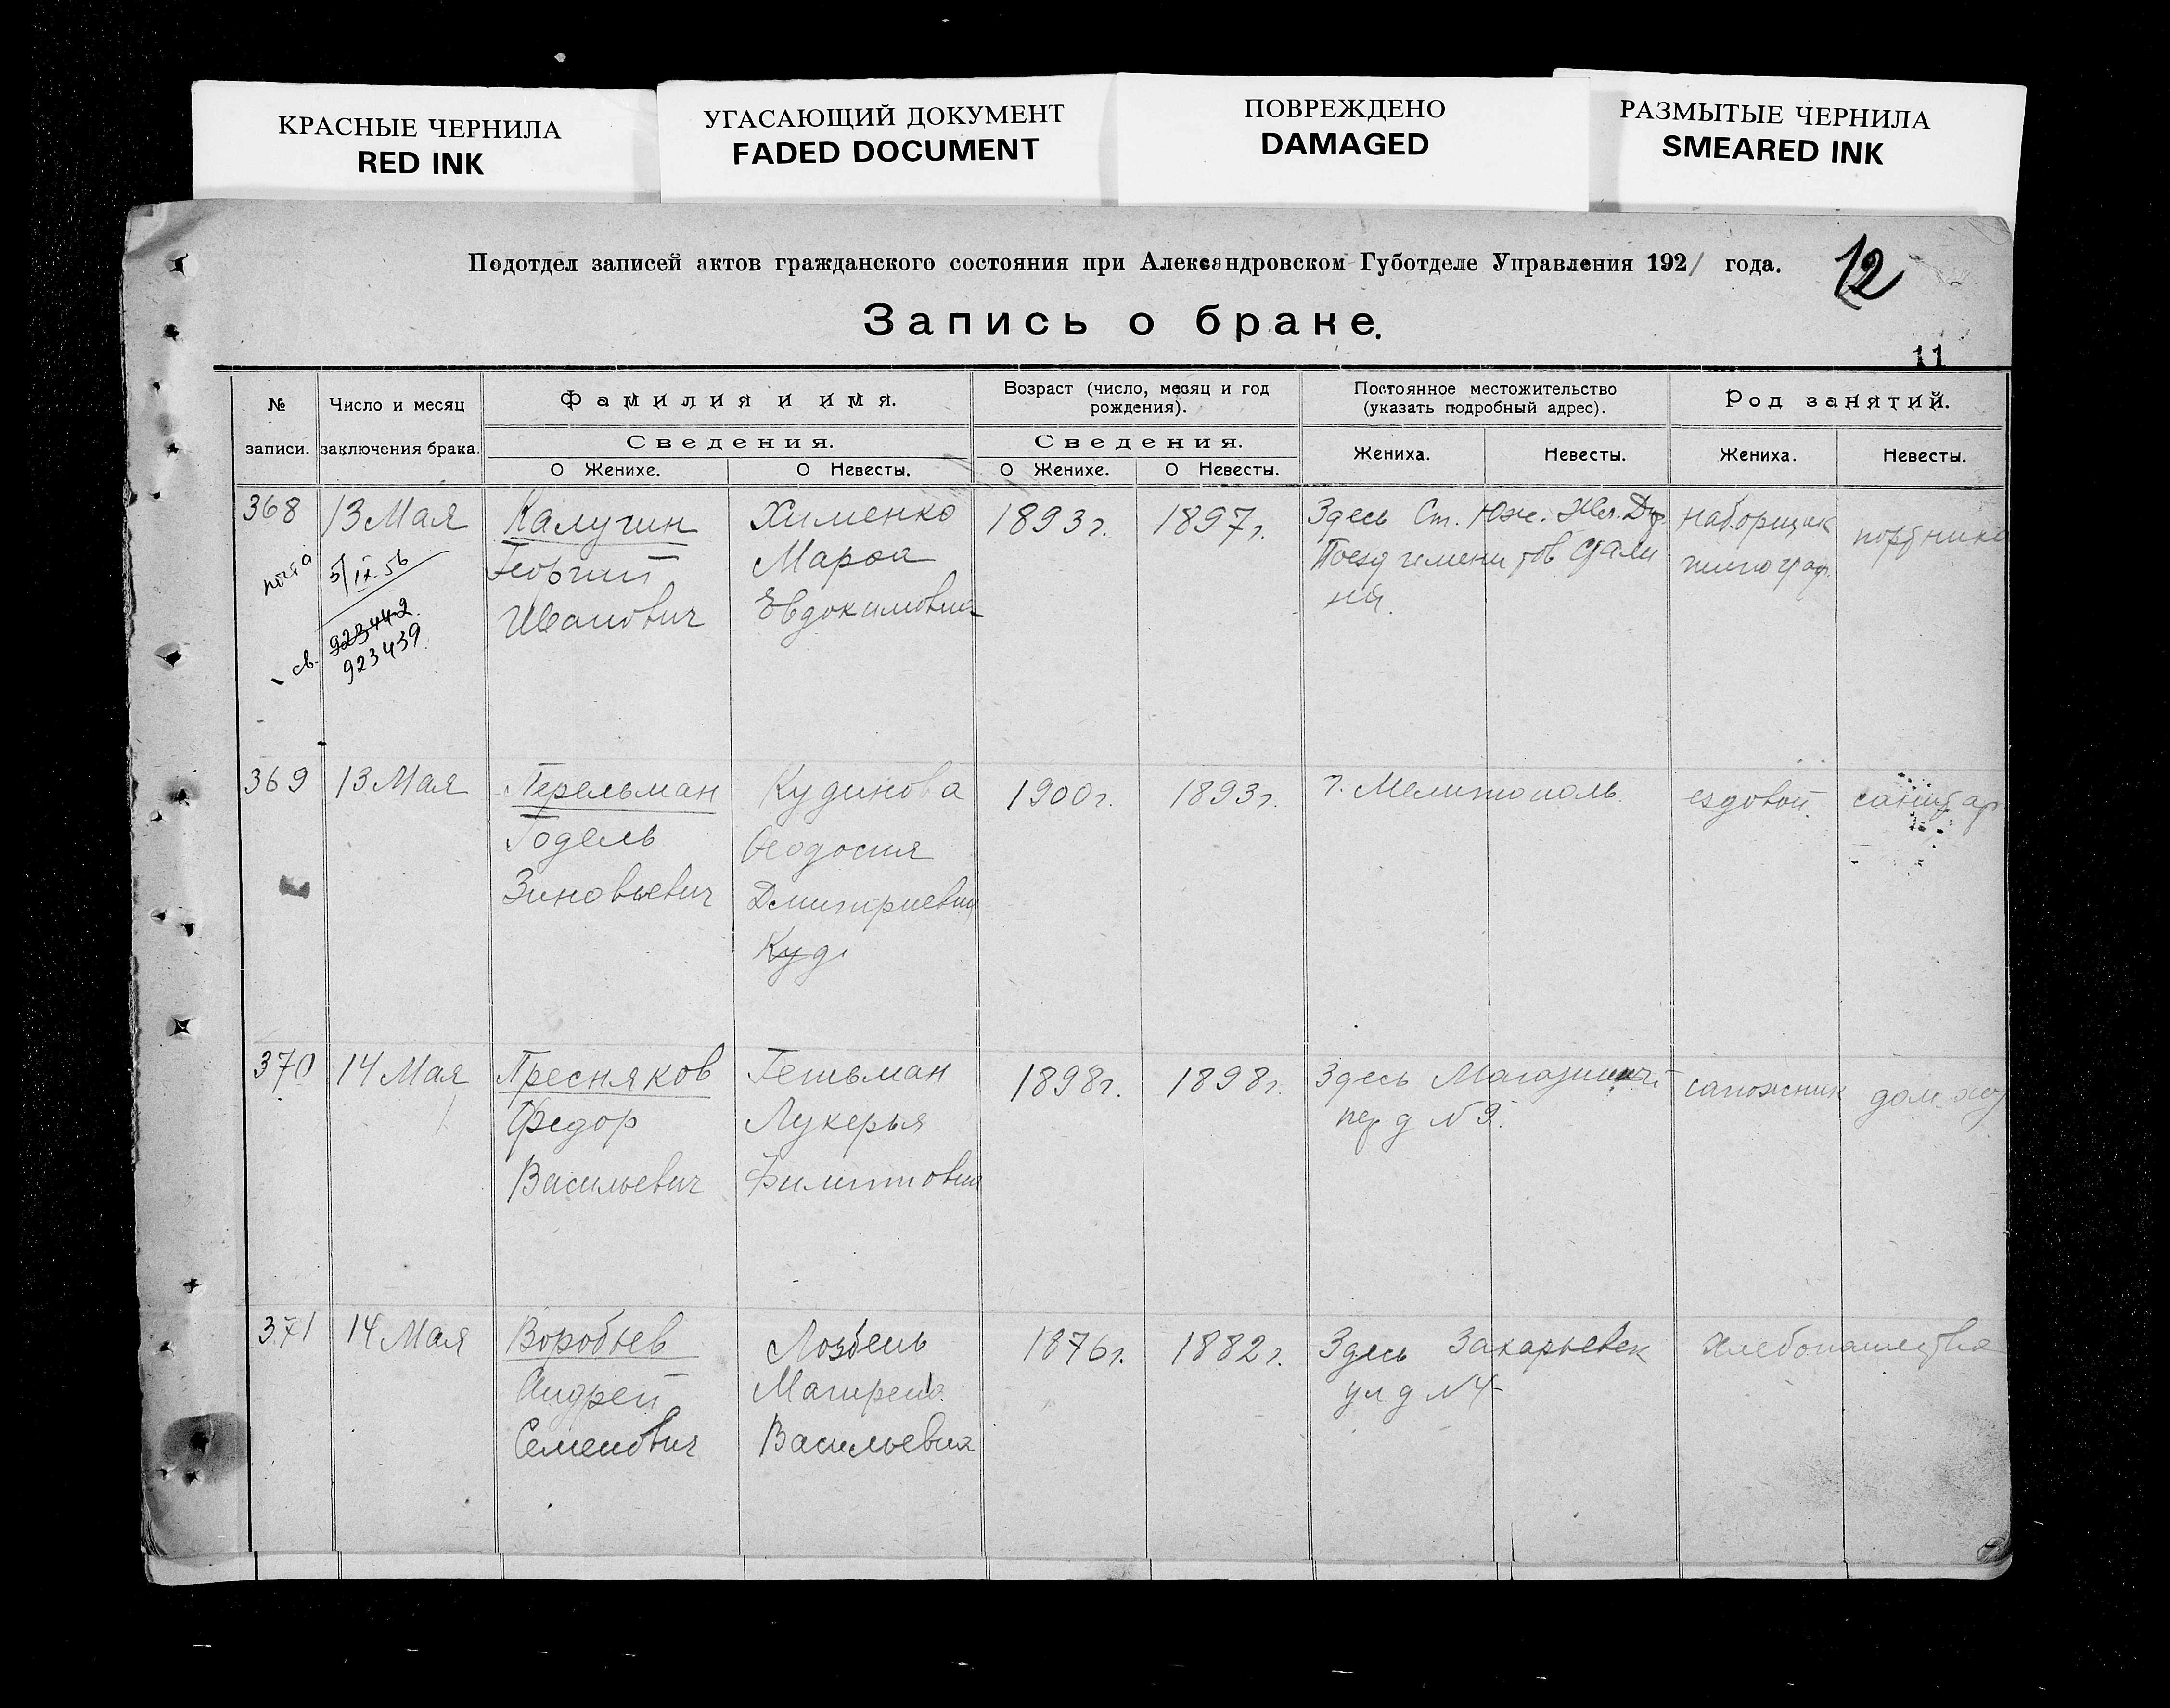 КРАСНЫЕ ЧЕРНИЛА
RED INK
УГАСАЮЩИЙ ДОКУМЕНТ
FADED DOCUMENT
ПОВРЕЖДЕНО
DAMAGED
РАЗМЫТЫЕ ЧЕРНИЛА
SMEARED INK
Подотдел записей актов гражданского состояния при Александровском Губотделе Управления 1921 года.
12
Запись о браке.
11
№ записи.
Число и месяц заключения брака.
Фамилия и имя.
Сведения.
О Женихе.
О Невесты.
Возраст (число, месяц и год рождения).
Сведения.
О Женихе.
О Невесты.
Постоянное местожительство
(указать подробный адрес).
Жениха.
Невесты.
Род занятий.
Жениха.
Невесты.
368
13 Мая
5/IX-56
св.
923442
923439
Калугин
Георгий
Иванович
Хименко
Мария
Евдокимовна
1893 г.
1897 г.
Здесь Ст. Юж. Жел. Дор.
Поезд имени тов Стали
на
наборщик
типограф.
портниха
369
13 Мая
Перельман
Годель
Зиновьевич
Кудинова
Феодосия
Дмитриевна
Куд
1900 г.
1893 г.
г. Мелитополь
ездовой
санитар
370
14 Мая
Пресняков
Федор
Васильевич
Гетьман
Лукерья
Филипповна
1898 г.
1898 г.
Здесь
пер д № 9.
сапожник
дом хоз
371
14 Мая
Воробьев
Андрей
Семенович
Лозбень
Матрена
Васильевна
1876 г.
1882 г.
Здесь Захарьевск
ул д № 4
хлебопашество